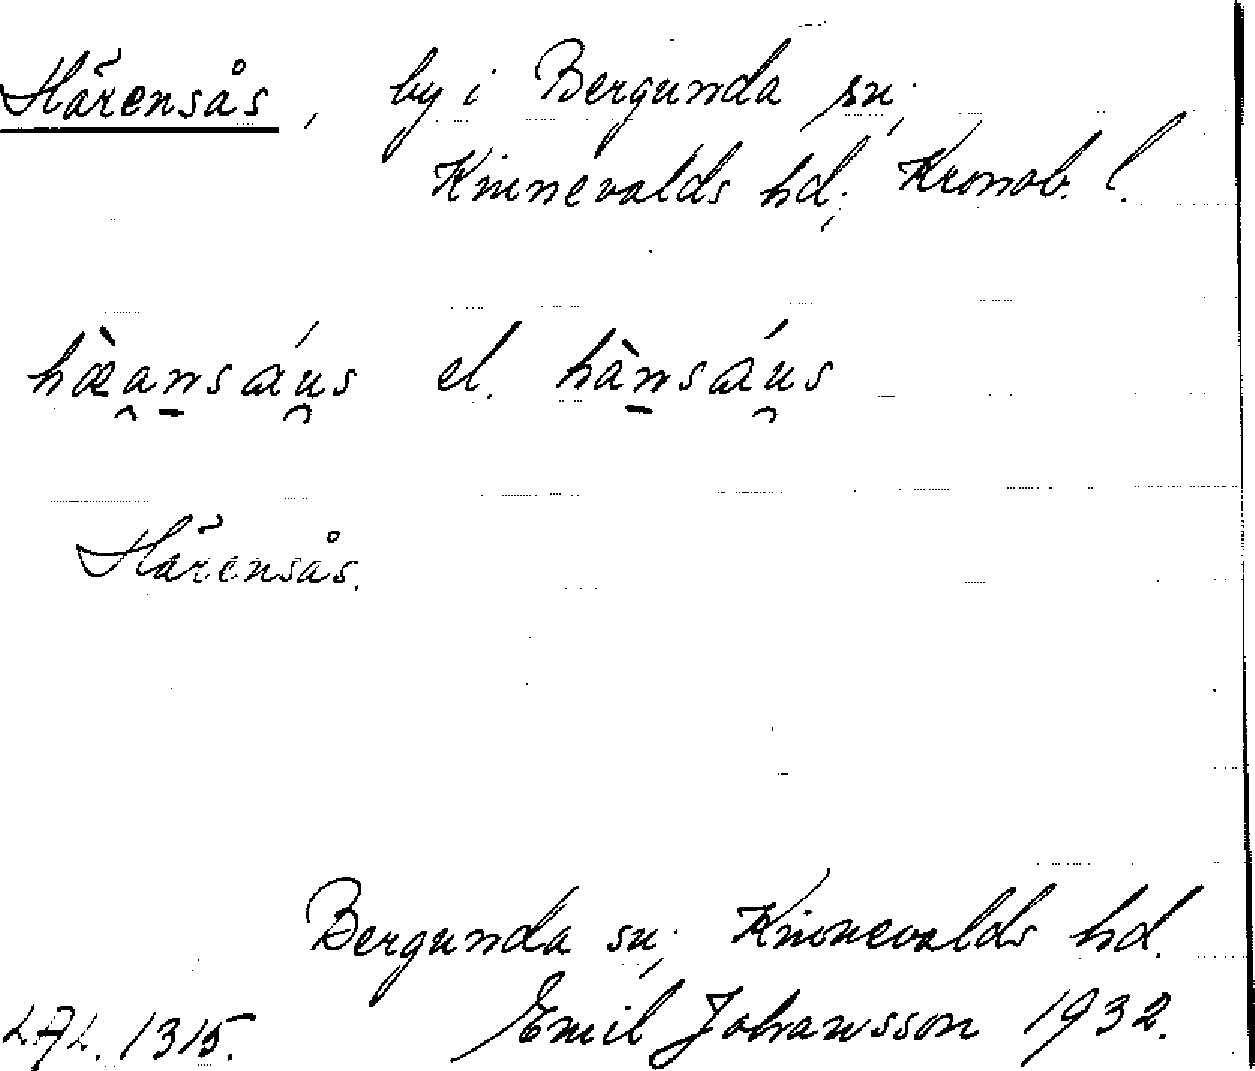 Härensås, by i Bergunda sn;
Kinnevalds hd; Kronob. l.
hæ̀a̯n̲sáu̯s el. hàn̲sáu̯s
Härensås.
Bergunda sn; Kinnevalds hd.
LAL. 1315. Emil Johansson 1932.